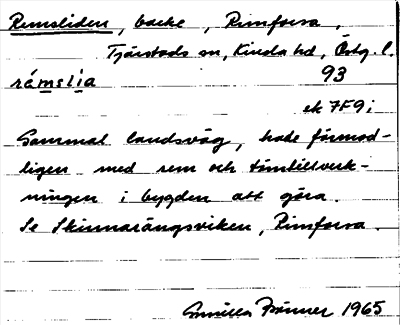 Remsliden, backe, Rimforsa,
Tjärstads sn, Kinda hd, Östg. l.
rámslìa 93
ek 7F9i
Gammal landsväg, hade förmod-
ligen med rem och tömtillverk-
ningen i bygden att göra.
Se Skinnarängsviken, Rimforsa.
Gunilla 1965